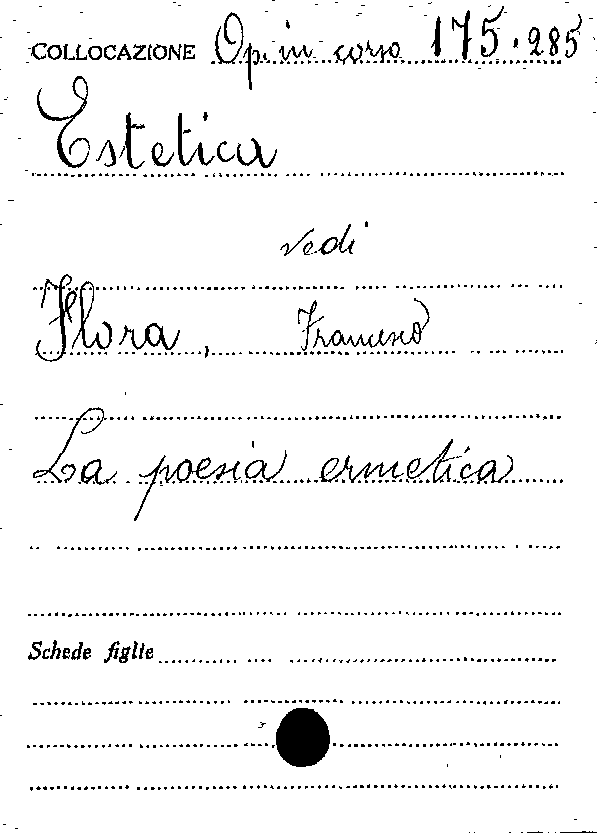 COLLOCAZIONE Op. in corso 175.285
Estetica
vedi
Flora, Francesco
La poesia ermetica
Schede figlie